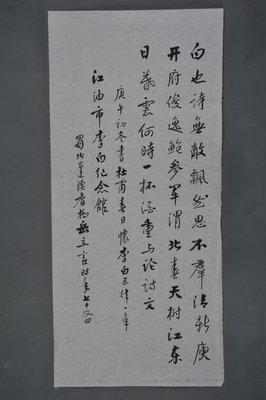 白也詩無敵飄然思不羣清新庾
开府俊逸鲍参军渭北春天树江东
日暮雲何時一杯酒重与论詩文
庚午初冬書杜甫春日懷李白五律一章
江油市李白纪念館
蜀北蓬溪
立言時年七十又四